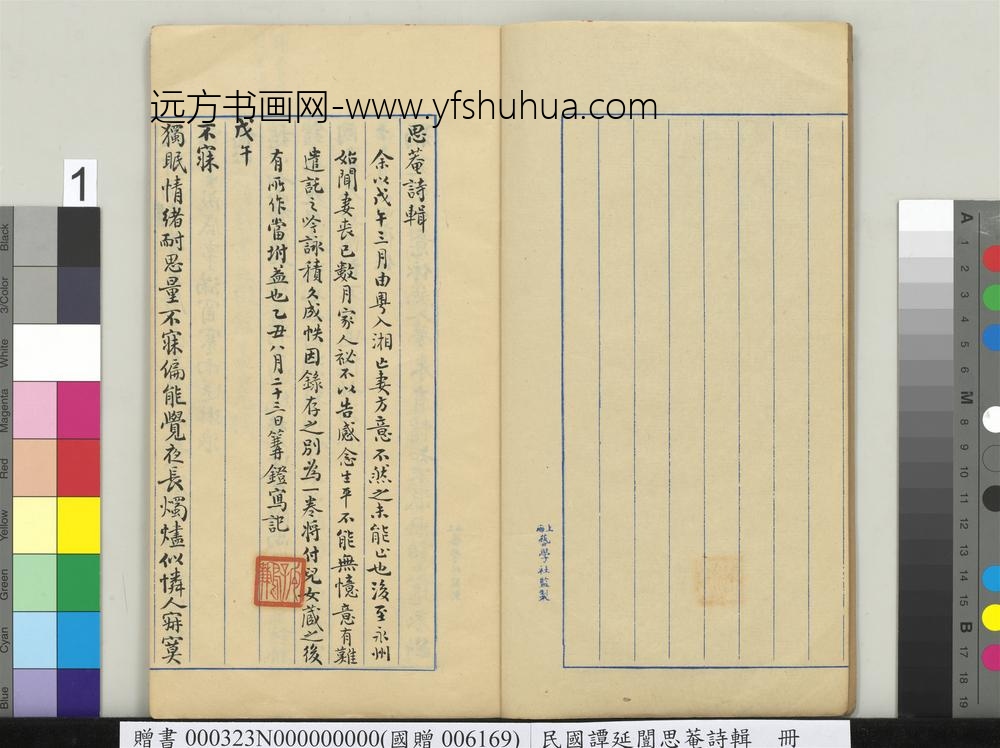 远方书画网-www.yfshuhua.com
思菴詩輯
余以戊午三月由粵入湘亡妻方意不然之未能止也後至永州
始聞妻喪已數月家人祕不以告感念生平不能無憶意有難
遣託之吟詠積久成帙因錄存之別為一卷將付兒女藏之後
有所作當坿益也乙丑八月二十三日篝鐙寫記
戊午
不寐
獨眠情緒耐思量不寐偏能覺夜長燭燼似憐人寂寞
上海藝學社監製
1
Black
3/Color
White
Magenta
Red
Yellow
Green
Cyan
Blue
A 1 2 3 4 5 M 8 9 10 11 12 13 14 15 B 17 18 19
贈書 000323N000000000(國贈 006169) 民國譚延闓思菴詩輯 冊